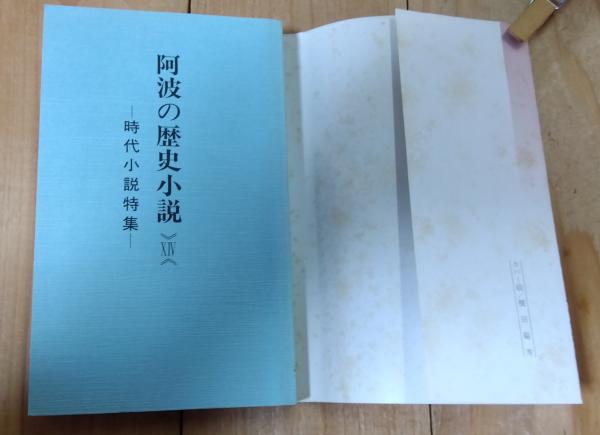 阿波の歴史小説《XIV》
―時代小説特集―
カバー絵／